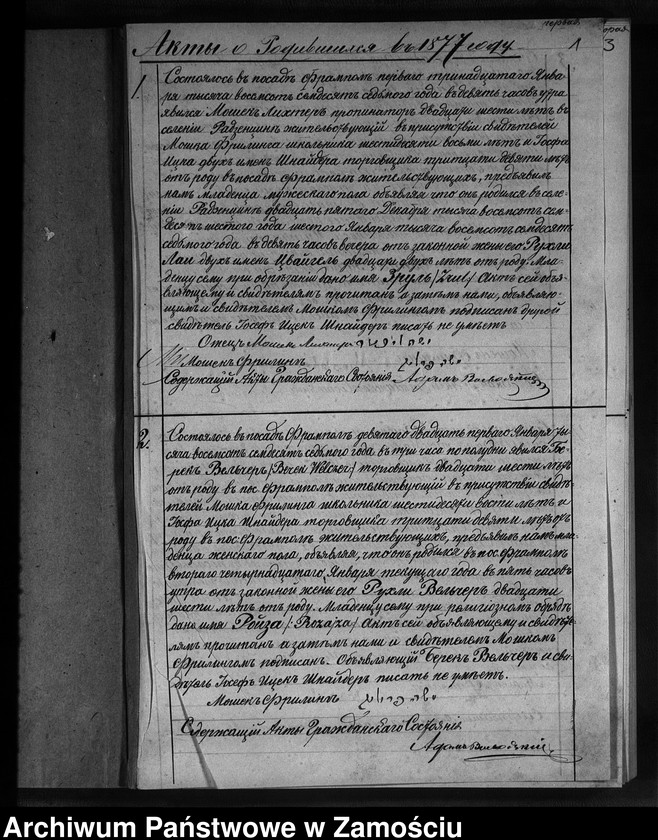 первая
Акты о Родившихся въ 1877 году
1
3
1.
Состоялось въ посадѣ Фрамполѣ перваго тринадцатаго Янва-
ря тысяча восемсотъ семдесятъ седьмаго года въ девять часовъ утра
явился Мошекъ Лихтеръ пропинаторъ двадцати шести лѣтъ въ
селеніи Радзенцинъ жительствующій въ присутствіи свидѣтелей
Мошка Фрилинга школьника шестидесяти восьми лѣтъ и Іосфа
Ицка двухъ именъ Шнайдера торговщика тритцати девяти лѣтъ
отъ роду въ посадѣ Фрамполѣ жительствующихъ, предъявилъ
намъ младенца мужескаго пола объявляя что онъ родился въ селе-
ніи Радзенцинъ двадцать пятаго Декабря тысяча восемсотъ сем-
десятъ шестого года шестого Января тысяча восемсотъ семдесятъ
седьмаго года въ девять часовъ вечера отъ законной жены его Рухли
Лаи двухъ именъ Цвайгель двадцати двухъ лѣтъ отъ роду. Мла-
денцу сему при обрѣзаніи дано имя Зруль /Zrul/ Актъ сей объя-
вляющему и свидѣтелямъ прочитанъ а затѣмъ нами, объявляю-
щимъ и свидѣтелемъ Мошкомъ Фрилингомъ подписанъ другой
свидѣтель Іосефъ Ицекъ Шнайдеръ писать не умѣетъ
Отецъ Мошекъ Лихтеръ
Мошекъ Фрилинкъ
Содержащій Акты Гражданскаго Состоянія Адамъ
2.
Состоялось въ посадѣ Фрамполѣ девятаго двадцать перваго Января ты-
сяча восемсотъ семдесятъ седьмаго года въ три часа по полудни явился Бе-
рекъ Вельчеръ /Berek Welczer/ торговщикъ двадцати шести лѣтъ
отъ роду въ пос. Фрамполѣ жительствующій въ присутствіи свидѣ-
телей Мошка Фрилинга школьника шестидесяти восьми лѣтъ и
Іосфа Ицка Шнайдера торговщика тритцати девяти лѣтъ отъ
роду въ пос. Фрамполѣ жительствующихъ, предъявилъ намъ мла-
денца женскаго пола, объявляя, что онъ родился въ пос. Фрамполѣ
втораго четырнадцатаго Января текущаго года въ пять часовъ
утра отъ законной жены его Рухли Вельчеръ двадцати
шести лѣтъ отъ роду. Младенцу сему при религіозномъ обрядѣ
дано имя Ройза /:Rozajza/ Актъ сей объявляющему и свидѣте-
лямъ прочитанъ а затѣмъ нами и свидѣтелемъ Мошкомъ
Фрилингомъ подписанъ. Объявляющій Берекъ Вельчеръ и сви-
дѣтель Іосефъ Ицекъ Шнайдеръ писать не умѣетъ.
Мошекъ Фрилинкъ
Содержащій Акты Гражданскаго Состоянія
Адамъ
Archiwum Państwowe w Zamościu